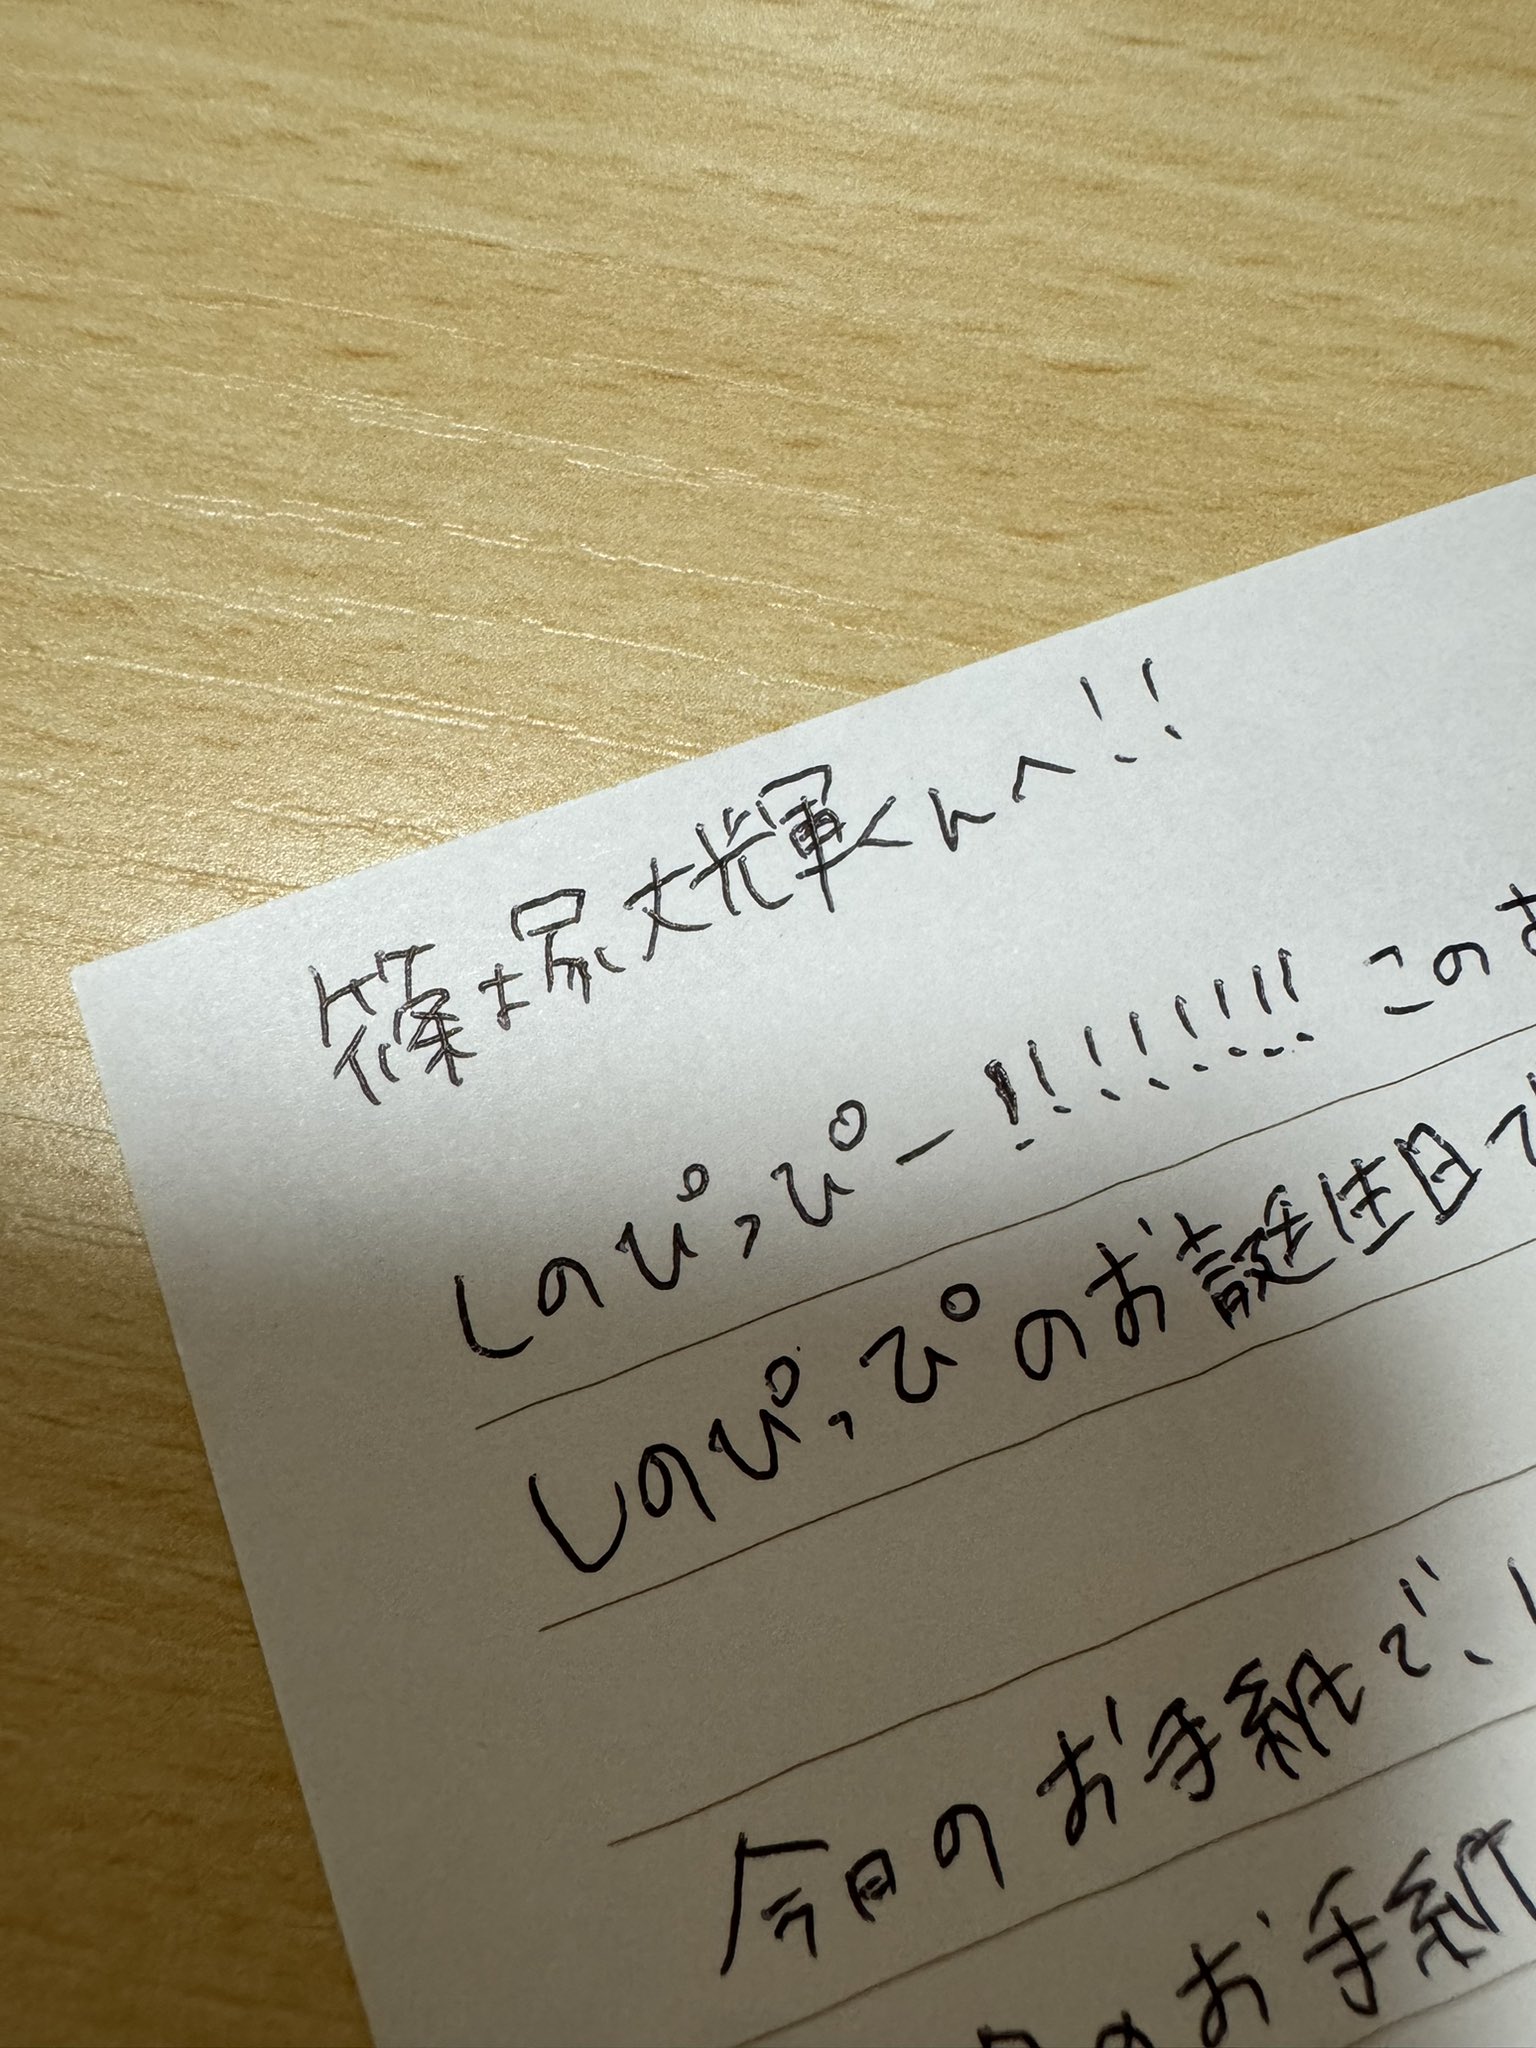 篠塚大輝くんへ!!
しのぴっぴー!!!!!!!! このお
しのぴっぴのお誕生日で
今日のお手紙で、
のお手紙